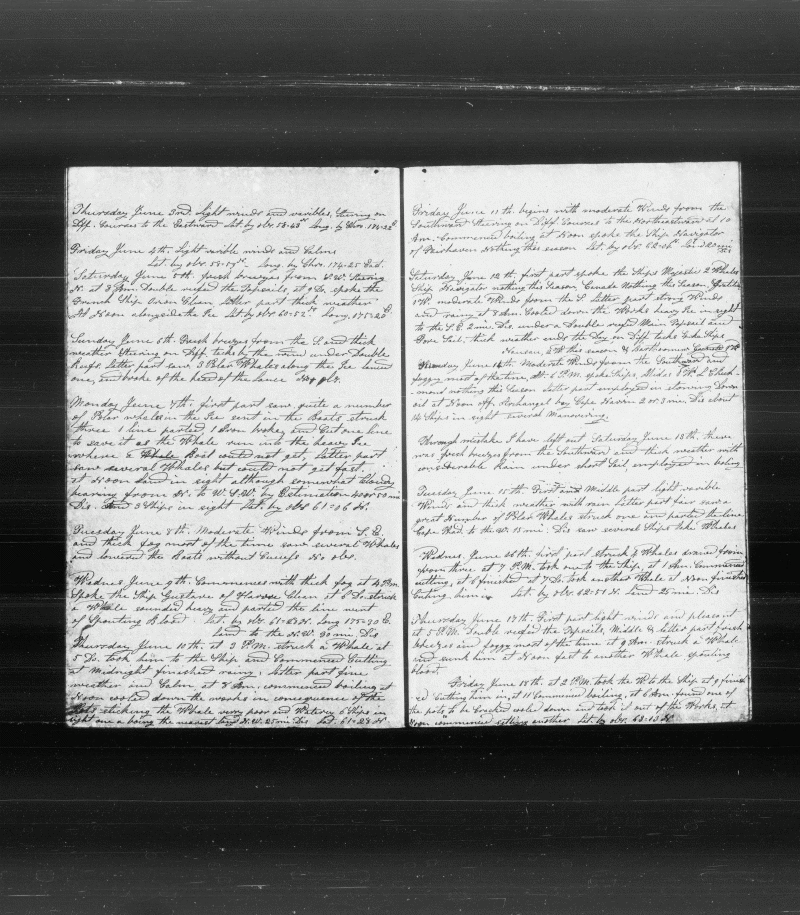 Thursday June 3rd. Light winds and varibles, Steering on
Diff. Courses to the Eastward Lat. by obs. 58-43 N Long. by Chro. 174-22 E.
Friday June 4th. Light varible winds and Calms
Lat. by obs. 58-59 N. Long. by Chr. 174-25 East.
Saturday June 5th. fresh breezes from S.W. Steering
N. at 3 Am. Double reefed the Topsails, at 9 Do. spoke the
French Ship Orion Clean, Latter part thick weather
At Noon alongside the Ice Lat by obs 60-52 N Long. 175-20 E.
Sunday June 6th. Fresh breezes from the S. and thick
weather Steering on Diff. tacks by the wind under Double
Reefs Latter part saw 3 Polar Whales along the Ice
one, and broke of the head of the Lance No obs.
Monday June 7th. first part saw quite a number
of Polar whales in the Ice sent in the Boats struck
three 1 line parted 1 Iron broke, and Cut one line
to save it as the Whale run into the heavy Ice
where a Whale Boat could not get, Latter part
saw several Whales but could not get fast.
at Noon Land in sight although somewhat Cloudy
bearing from N. to W.S.W. by Estimation 40 or 50 mi
Dis. And 3 Ships in sight Lat. by obs 61-06 N.
Tuesday June 8th. Moderate Winds from S.E.
and thick fog most of the time saw several Whales
and lowered the Boats without Success. No obs.
Wednes June 9th. Commences with thick fog at 4 P.m.
Spoke the Ship Gustave of Havre Clean at 6 Do. struck
a Whale sounded heavy and parted the line went
of Spouting Blood. Lat. by obs 61-23 N. Long 175-30 E.
Land to the N.W. 30 mi. Dis
Thursday June 10th. at 3 P.M. struck a Whale at
5 Do. took him to the Ship and Commenced Cutting
at Midnight finished rainy, Latter part fine
weather and Calm, at 8 Am. commenced boiling at
Noon cooled down the works in consequence of the
Pots sticking the Whale very poor and Watery 6 Ships in
sight one a boiling the nearest land N.W. 25 mi Dis Lat 61-28 N
Friday June 11th. begins with moderate Winds from the
Southward Steering on Diff. Courses to the Northeastward at 10
Am. Commenced boiling at Noon spoke the Ship Navigator
of Fairhaven Nothing this season Lat. by obs 62-06 N.
Saturday June 12th. first part spoke the Ships Majestic 2 Whales
Ship Navigator nothing this Season, Canada Nothing the Season.
1 W. moderate Winds from the S. Latter part strong Winds
and rainy at 8 Am. Cooled down the Works heavy Ice in sight
to the S.E. 2 mi. Dis. under a Double reefed Main Topsail and
Fore Sail, thick weather ends the Day on Diff. tacks Spoke Ships
2 W this season &
June 14th. Moderate Winds from the Southward and
foggy most of the time, At. 6 P.M. spoke Ships,
nothing this Season Latter part employed in stowing down
oil at Noon off, Archangel bay Cape Navrin 2 or 3 mi. Dis about
14 Ships in sight several Manovering.
Through mistake I have left out Saturday June 13th. there
was fresh breezes from the Southward and thick weather with
considerable Rain under short Sail employed in boiling
Tuesday June 15th. First and Middle part light varible
Winds and thick weather with rain Latter part fair saw a
great Number of Polar Whales struck one and parted the line
Cape Nad. to the W. 15 mi. Dis saw several Ships take Whales
Wednes. June 16th. first part Struck 4 Whales drawed from
from three at 7 P.M. took one to the Ship, at 1 Am. Commenced
cutting, at 6 finished at 7 Do. took another Whale at Noon finished
Cutting him in Lat. by obs 62-51 N. Land 25 mi. Dis
Thursday June 17th. First part light winds and pleasant
at 5 P.M. Double reefed the Topsails, Middle & latter part fresh
breezes and foggy most of the time at 9 Am. struck a Whale
and sunk him at Noon fast to another Whale spouting
blood.
Friday June 18th. at 2 P.M. took the W. to the Ship at 9 finish
ed Cutting him in, at 11 Commenced boiling, at 6 Am. found one of
the pots to be Cracked cooled down and took it out of the Works, at
Noon commenced cutting another Lat. by obs. 63-13 N